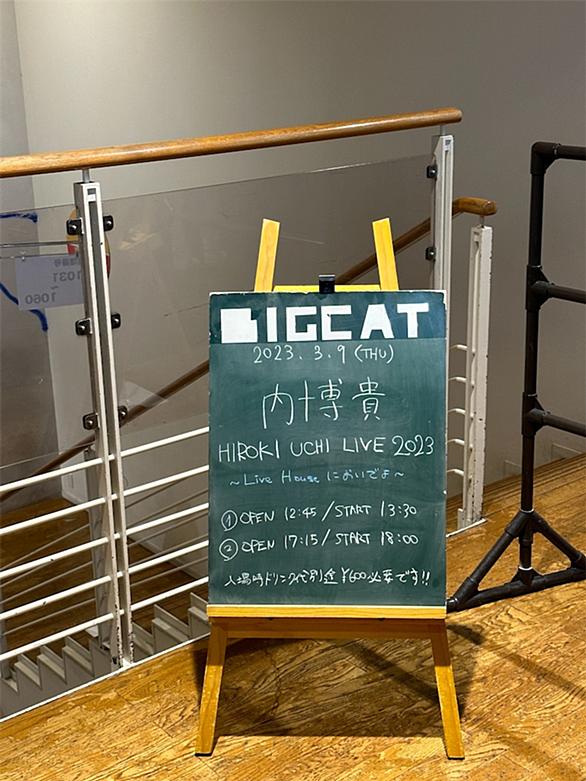 BIGCAT
2023. 3. 9 (THU)
内博貴
HIROKI UCHI LIVE 2023
～Live House においでよ～
① OPEN 12:45 / START 13:30
② OPEN 17:15 / START 18:00
入場時ドリンク代別途¥600必要です!!
1031
～
1060